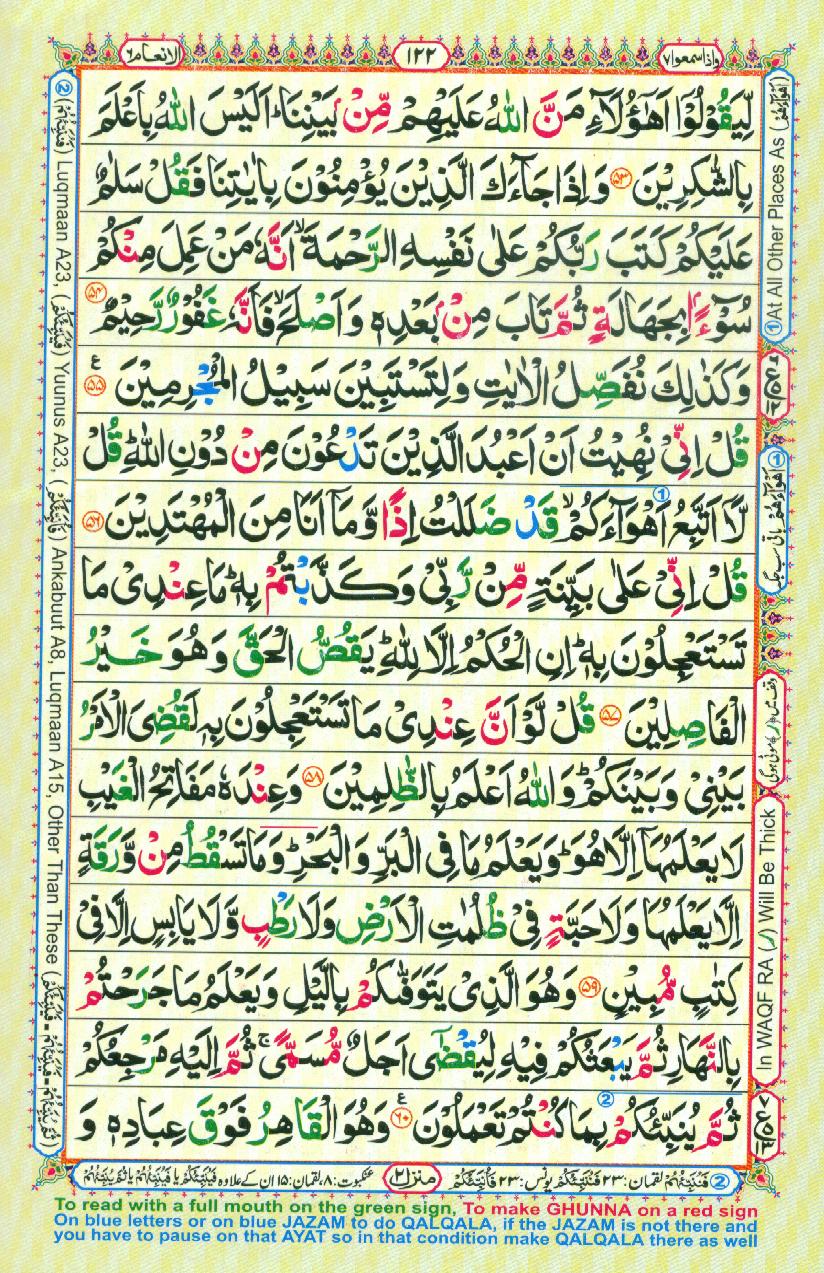 الانعام ٦
١٢٢
واذا سمعوا ٧
لِّيَقُوْلُوْۤا اَهٰۤؤُلَآءِ مَنَّ اللّٰهُ عَلَيْهِمْ مِّنْۢ بَيْنِنَا ؕ اَلَيْسَ اللّٰهُ بِاَعْلَمَ
بِالشّٰكِرِيْنَ ۝٥٣ وَاِذَا جَآءَكَ الَّذِيْنَ يُؤْمِنُوْنَ بِاٰيٰتِنَا فَقُلْ سَلٰمٌ
عَلَيْكُمْ كَتَبَ رَبُّكُمْ عَلٰى نَفْسِهِ الرَّحْمَةَ ۙ اَنَّهٗ مَنْ عَمِلَ مِنْكُمْ
سُوْٓءًۢا بِجَهَالَةٍ ثُمَّ تَابَ مِنْۢ بَعْدِهٖ وَاَصْلَحَ ۙ فَاَنَّهٗ غَفُوْرٌ رَّحِيْمٌ ۝٥٤
وَكَذٰلِكَ نُفَصِّلُ الْاٰيٰتِ وَلِتَسْتَبِيْنَ سَبِيْلُ الْمُجْرِمِيْنَ ۝٥٥ ع
قُلْ اِنِّيْ نُهِيْتُ اَنْ اَعْبُدَ الَّذِيْنَ تَدْعُوْنَ مِنْ دُوْنِ اللّٰهِ ؕ قُلْ
لَّاۤ اَتَّبِعُ اَهْوَآءَكُمْ ۙ قَدْ ضَلَلْتُ اِذًا وَّمَاۤ اَنَا مِنَ الْمُهْتَدِيْنَ ۝٥٦
قُلْ اِنِّيْ عَلٰى بَيِّنَةٍ مِّنْ رَّبِّيْ وَكَذَّبْتُمْ بِهٖ ؕ مَا عِنْدِيْ مَا
تَسْتَعْجِلُوْنَ بِهٖ ؕ اِنِ الْحُكْمُ اِلَّا لِلّٰهِ ؕ يَقُصُّ الْحَقَّ وَهُوَ خَيْرُ
الْفٰصِلِيْنَ ۝٥٧ قُلْ لَّوْ اَنَّ عِنْدِيْ مَا تَسْتَعْجِلُوْنَ بِهٖ لَقُضِيَ الْاَمْرُ
بَيْنِيْ وَبَيْنَكُمْ ؕ وَاللّٰهُ اَعْلَمُ بِالظّٰلِمِيْنَ ۝٥٨ وَعِنْدَهٗ مَفَاتِحُ الْغَيْبِ
لَا يَعْلَمُهَاۤ اِلَّا هُوَ ؕ وَيَعْلَمُ مَا فِي الْبَرِّ وَالْبَحْرِ ؕ وَمَا تَسْقُطُ مِنْ وَّرَقَةٍ
اِلَّا يَعْلَمُهَا وَلَا حَبَّةٍ فِيْ ظُلُمٰتِ الْاَرْضِ وَلَا رَطْبٍ وَّلَا يَابِسٍ اِلَّا فِيْ
كِتٰبٍ مُّبِيْنٍ ۝٥٩ وَهُوَ الَّذِيْ يَتَوَفّٰىكُمْ بِالَّيْلِ وَيَعْلَمُ مَا جَرَحْتُمْ
بِالنَّهَارِ ثُمَّ يَبْعَثُكُمْ فِيْهِ لِيُقْضٰۤى اَجَلٌ مُّسَمًّى ۚ ثُمَّ اِلَيْهِ مَرْجِعُكُمْ
ثُمَّ يُنَبِّئُكُمْ بِمَا كُنْتُمْ تَعْمَلُوْنَ ۝٦٠ ع وَهُوَ الْقَاهِرُ فَوْقَ عِبَادِهٖ وَ
① At All Other Places As (اَهْوَآءَهُمْ)
In WAQF RA (ر) Will Be Thick
② Luqmaan A23, Yuunus A23, Ankabuut A8, Luqmaan A15, Other Than These
منزل ٢
To read with a full mouth on the green sign, To make GHUNNA on a red sign
On blue letters or on blue JAZAM to do QALQALA, if the JAZAM is not there and
you have to pause on that AYAT so in that condition make QALQALA there as well